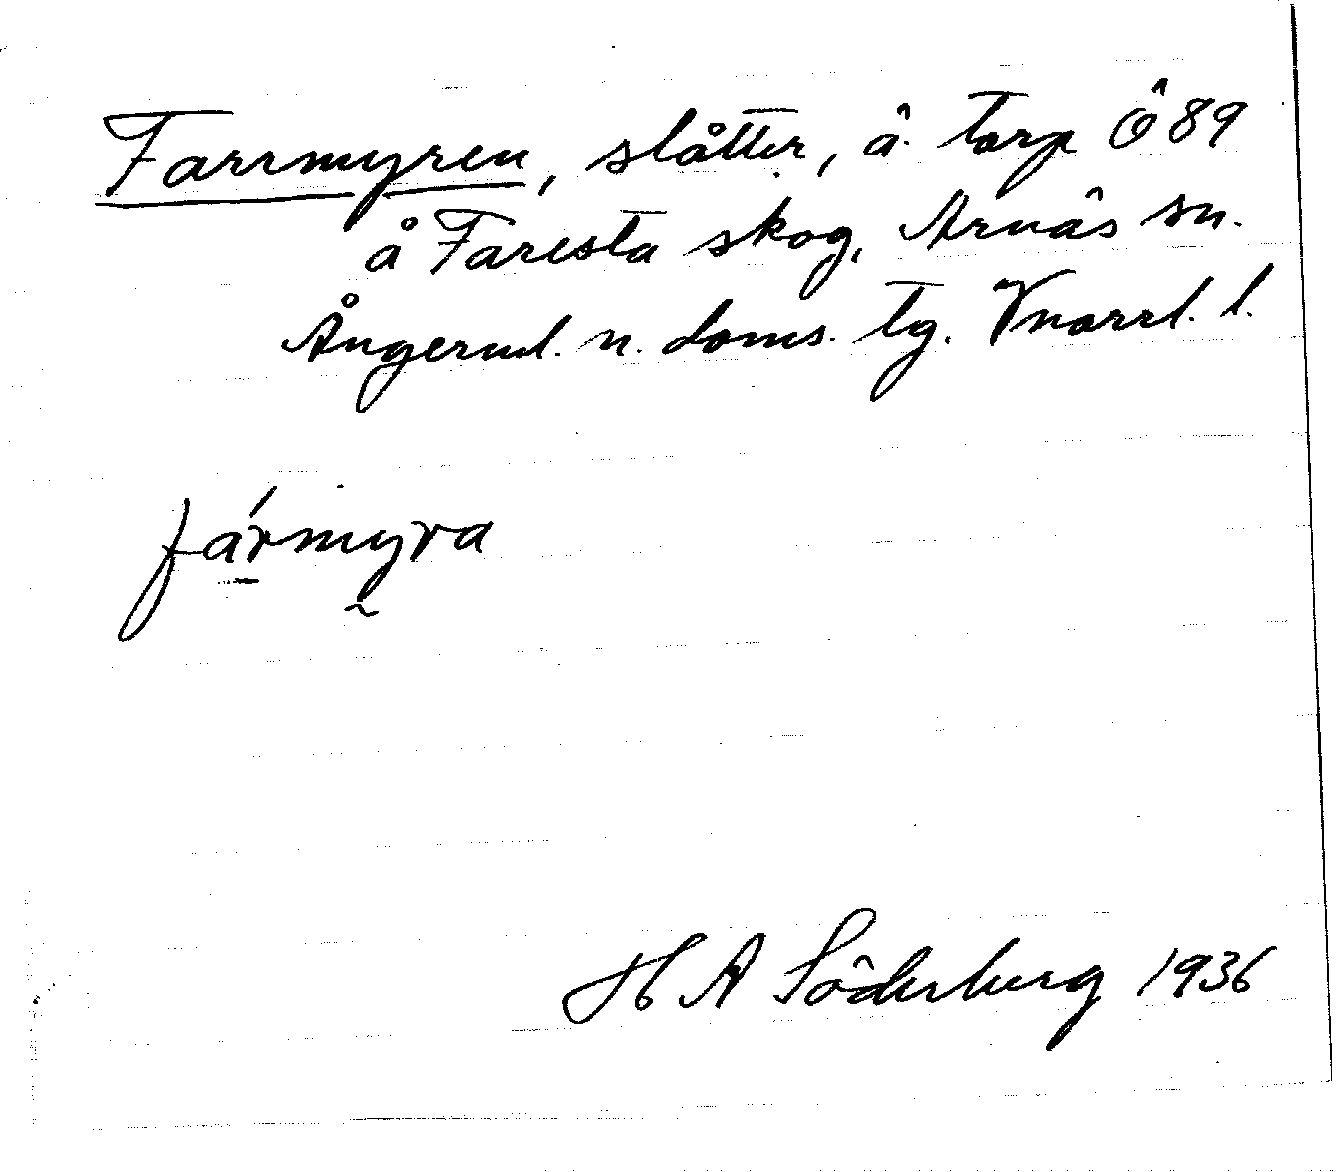 Farrmyren, slåtter, ä. torp Ö 89
å Faresta skog, Arnäs sn.
Ångerml. n. doms. tg. Vnorrl. l.
fármyra
H A Söderberg 1936